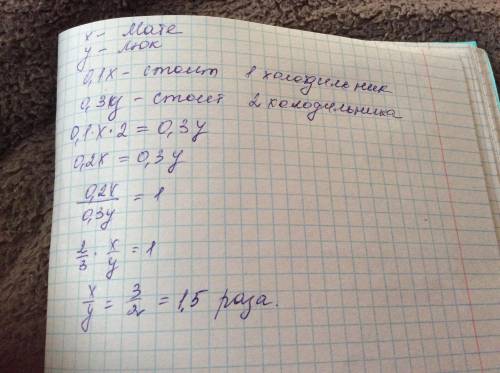 x - Мате
y - Люк
0,1x - стоит 1 холодильник
0,3y - стоит 2 холодильника
0,1·x·2 = 0,3y
0,2x = 0,3y
0,2x/0,3y = 1
2/3 · x/y = 1
x/y = 3/2 = 1,5 раза.